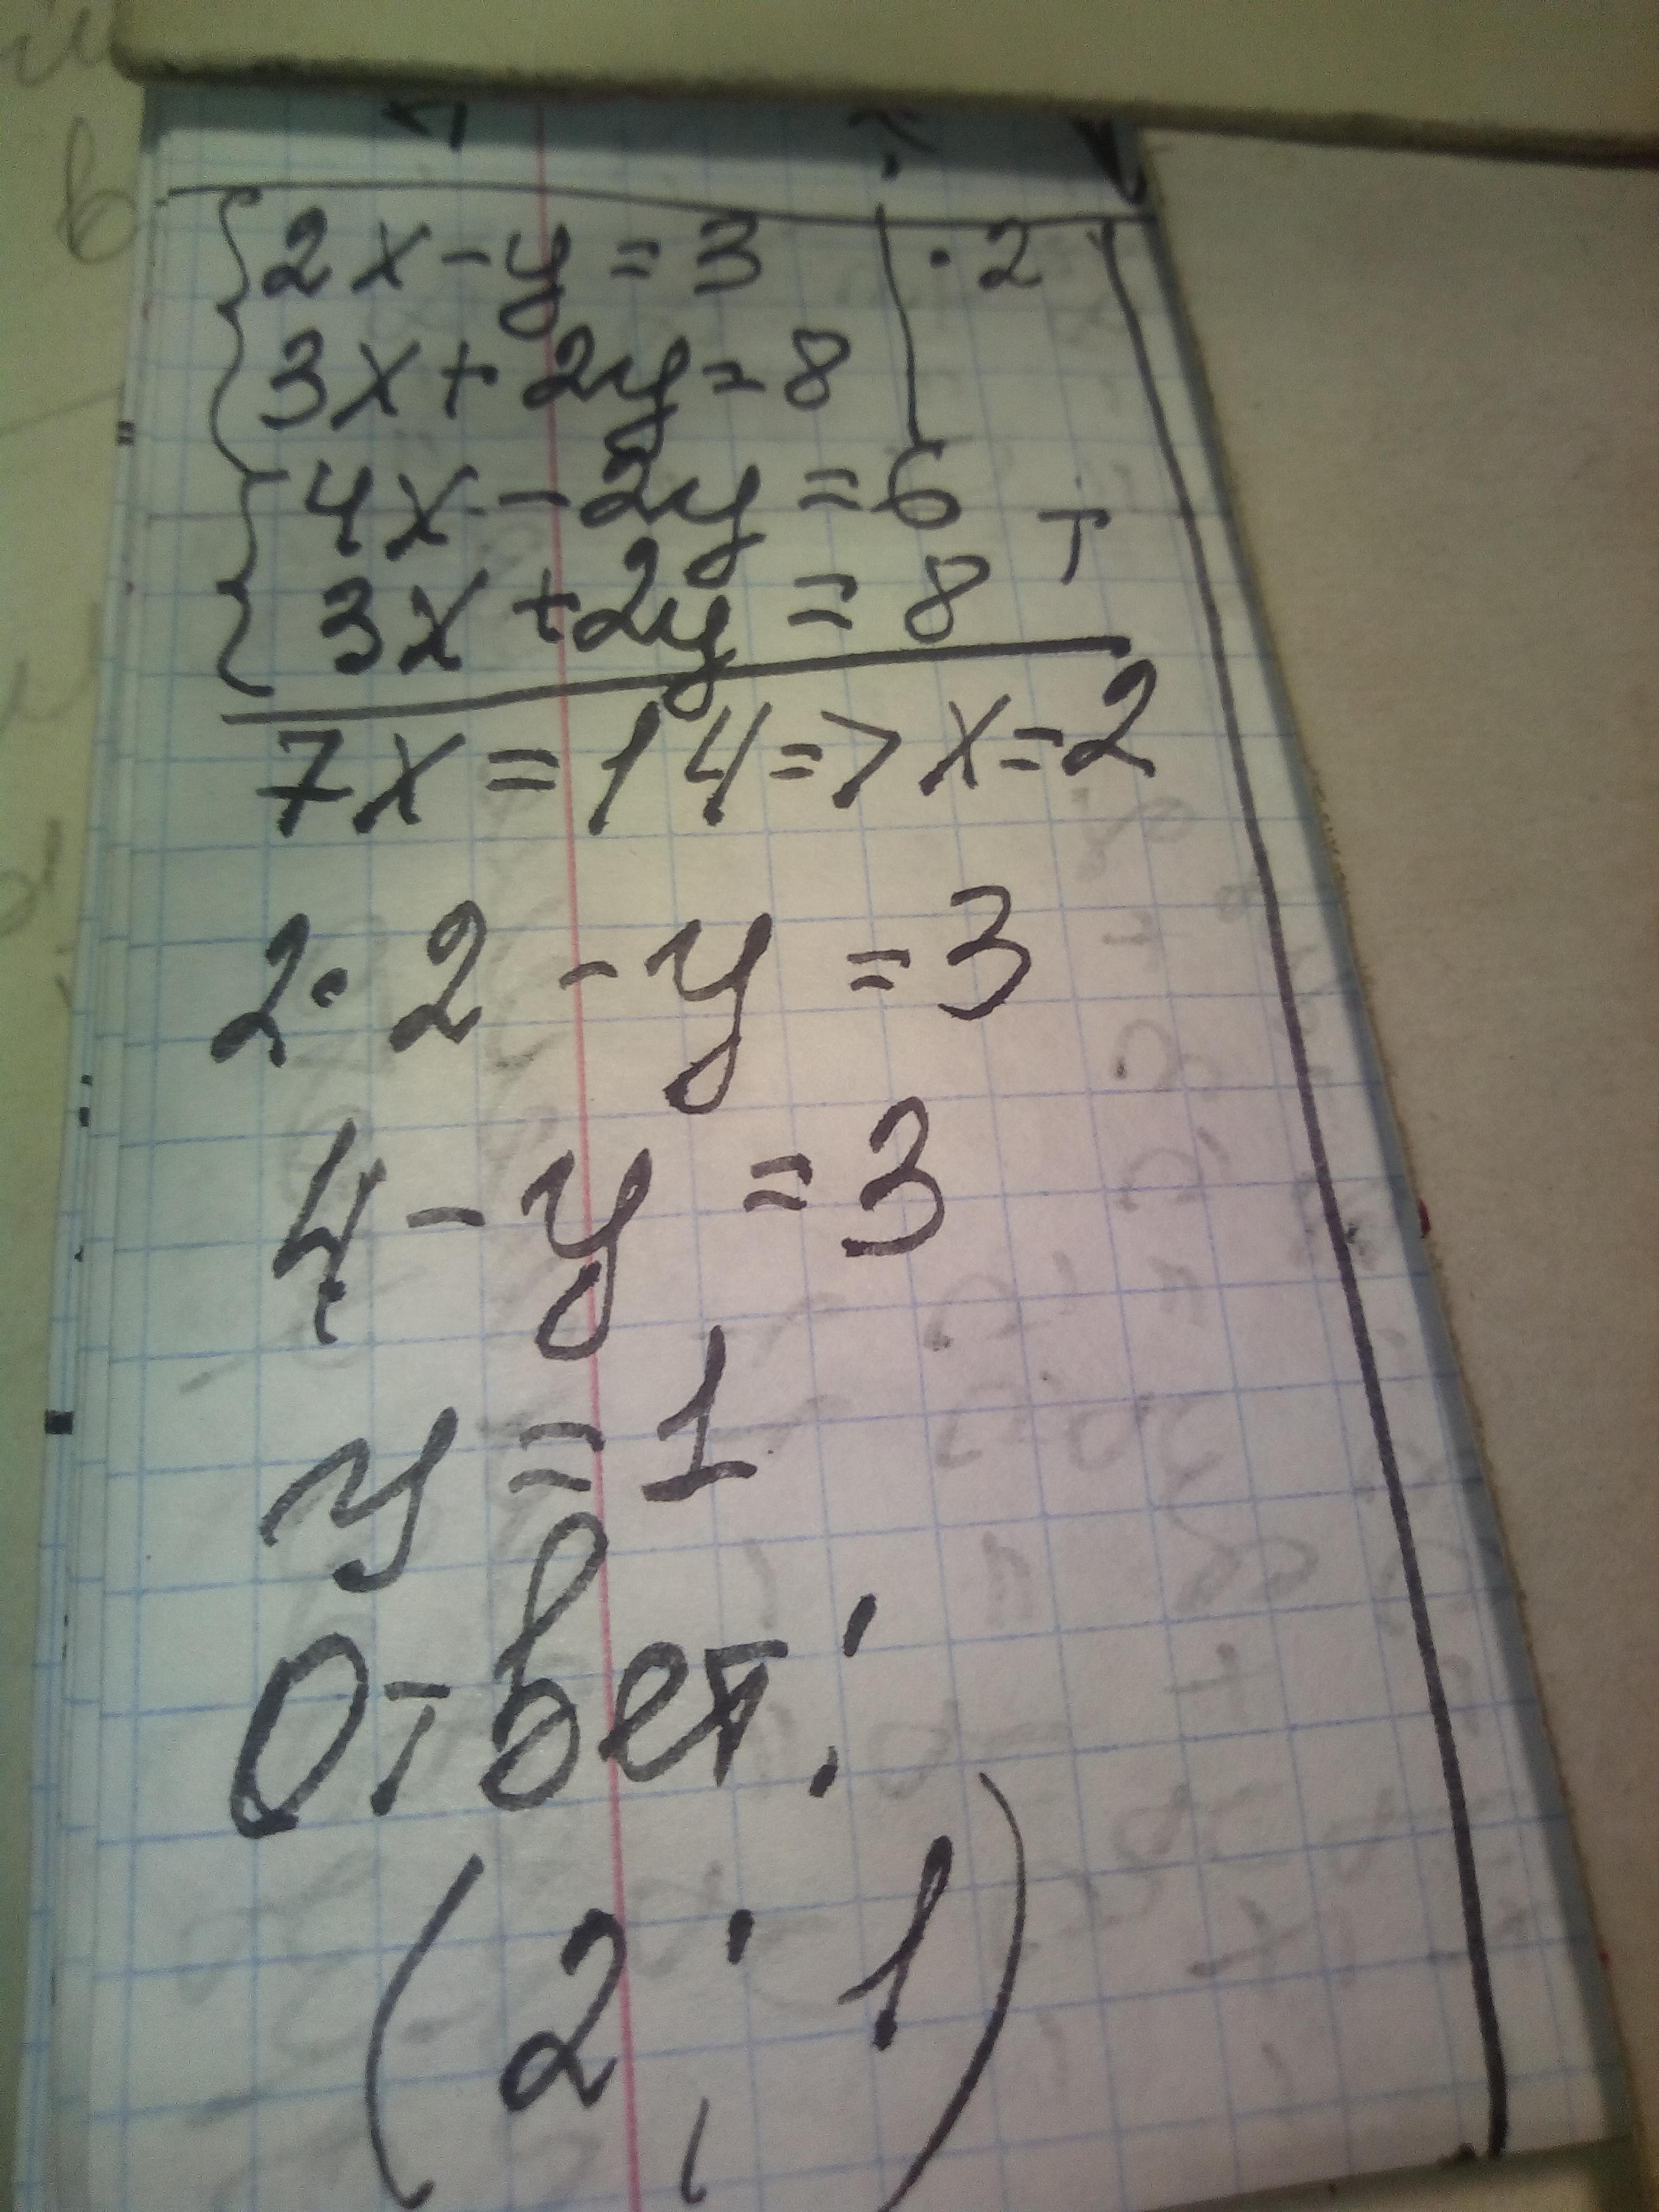 2x-y=3 | ·2
3x+2y=8
4x-2y=6 +
3x+2y=8
7x=14=>x=2
2·2-y=3
4-y=3
y=1
Ответ:
(2;1)